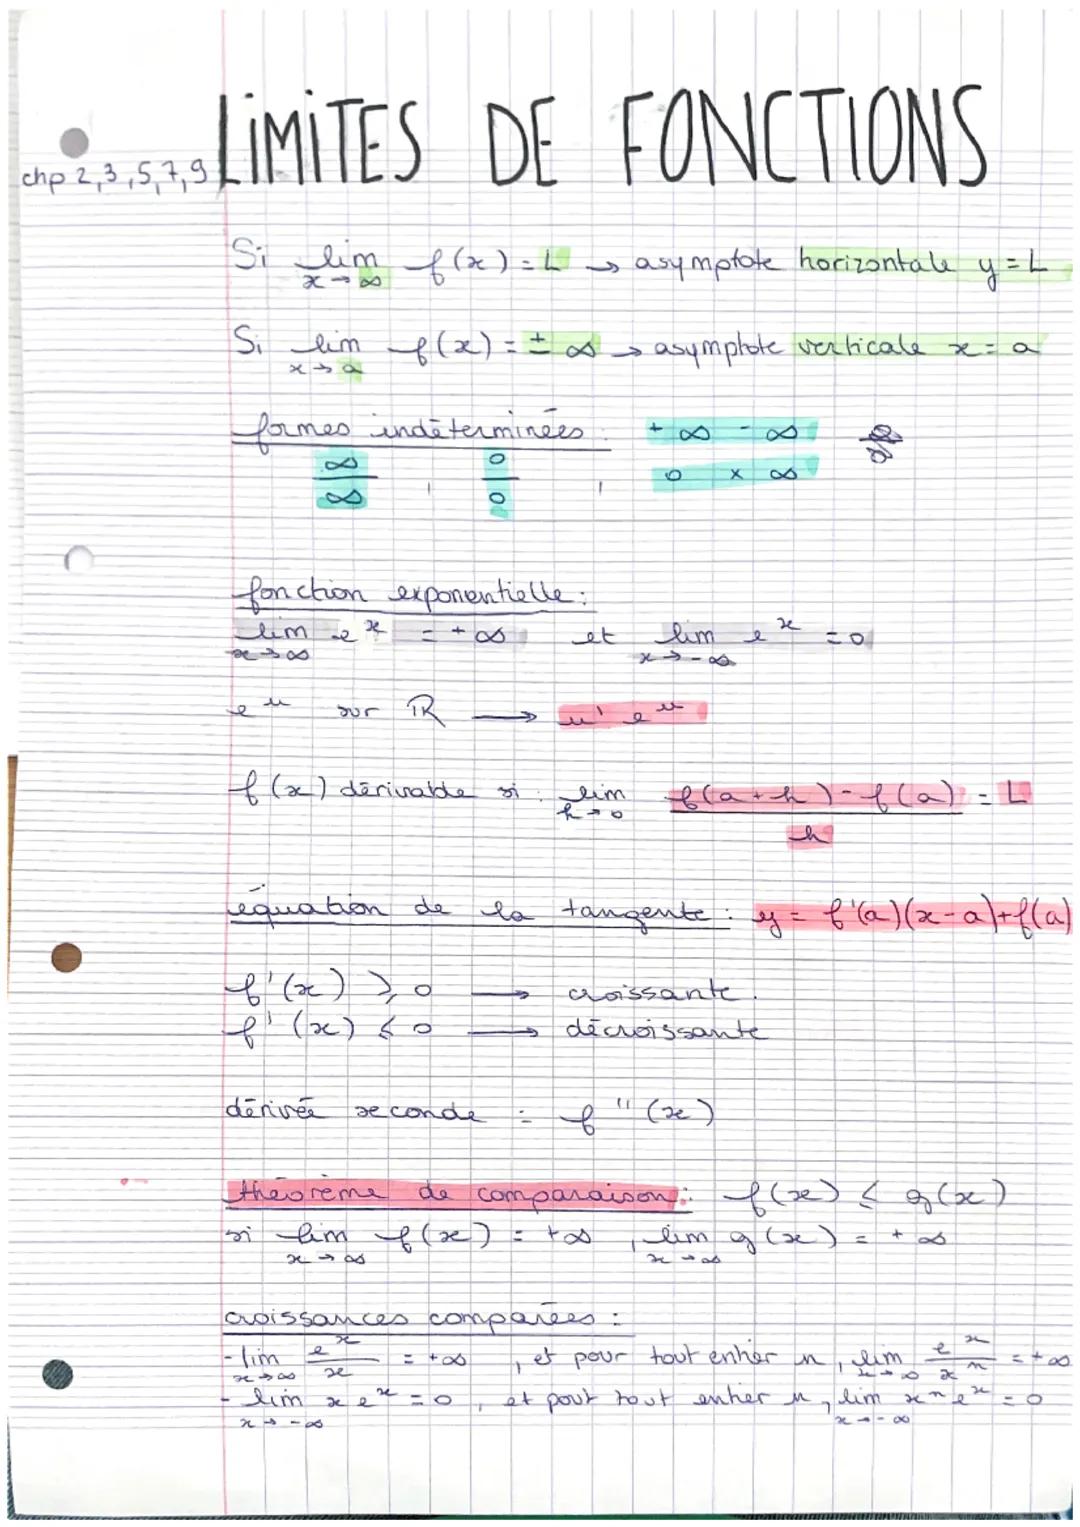 LIMITES DE FONCTIONS
chp 2,3,5,7,9
Si lim x→∞ f(x) = L → asymptote horizontale y = L
Si lim x→a f(x) = ± ∞ → asymptote verticale x = a
formes indéterminées : + ∞ - ∞
∞/∞ , 0/0 , 0 x ∞
fonction exponentielle :
lim x→∞ e^x = +∞ et lim x→-∞ e^x = 0
e^u sur ℝ → u' e^u
f(x) dérivable si : lim h→0 f(a+h)-f(a)/h = L
équation de la tangente : y = f'(a)(x-a)+f(a)
f'(x) ⩾ 0 → croissante.
f'(x) ⩽ 0 → décroissante
dérivée seconde : f''(x)
théorème de comparaison : f(x) ⩽ g(x)
si lim x→∞ f(x) = +∞ , lim x→∞ g(x) = +∞
croissances comparées :
- lim x→∞ e^x/x = +∞ , et pour tout entier n, lim x→∞ e^x/x^n = +∞
- lim x→-∞ x e^x = 0 , et pout tout entier n, lim x→-∞ x^n e^x = 0